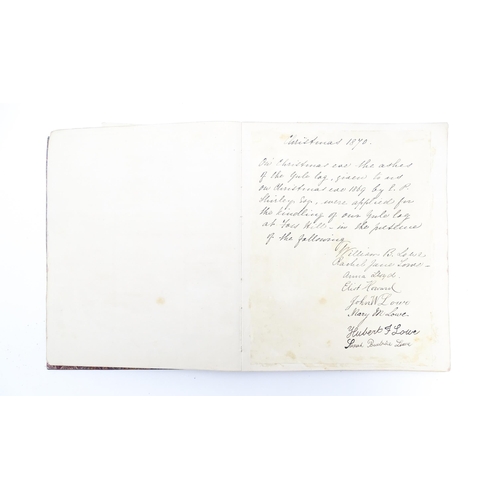 Christmas 1870.
On Christmas eve the ashes
of the Yule log, given to us
on Christmas eve 1869 by E. P.
Shirley Esq. were applied for
the kindling of our Yule log
at Hill - in the presence
of the following
William B.
Rachel Jane Lowe -
Anna
Eliot Howard
John W Lowe
Mary M Lowe.
Hubert F Lowe
Lowe